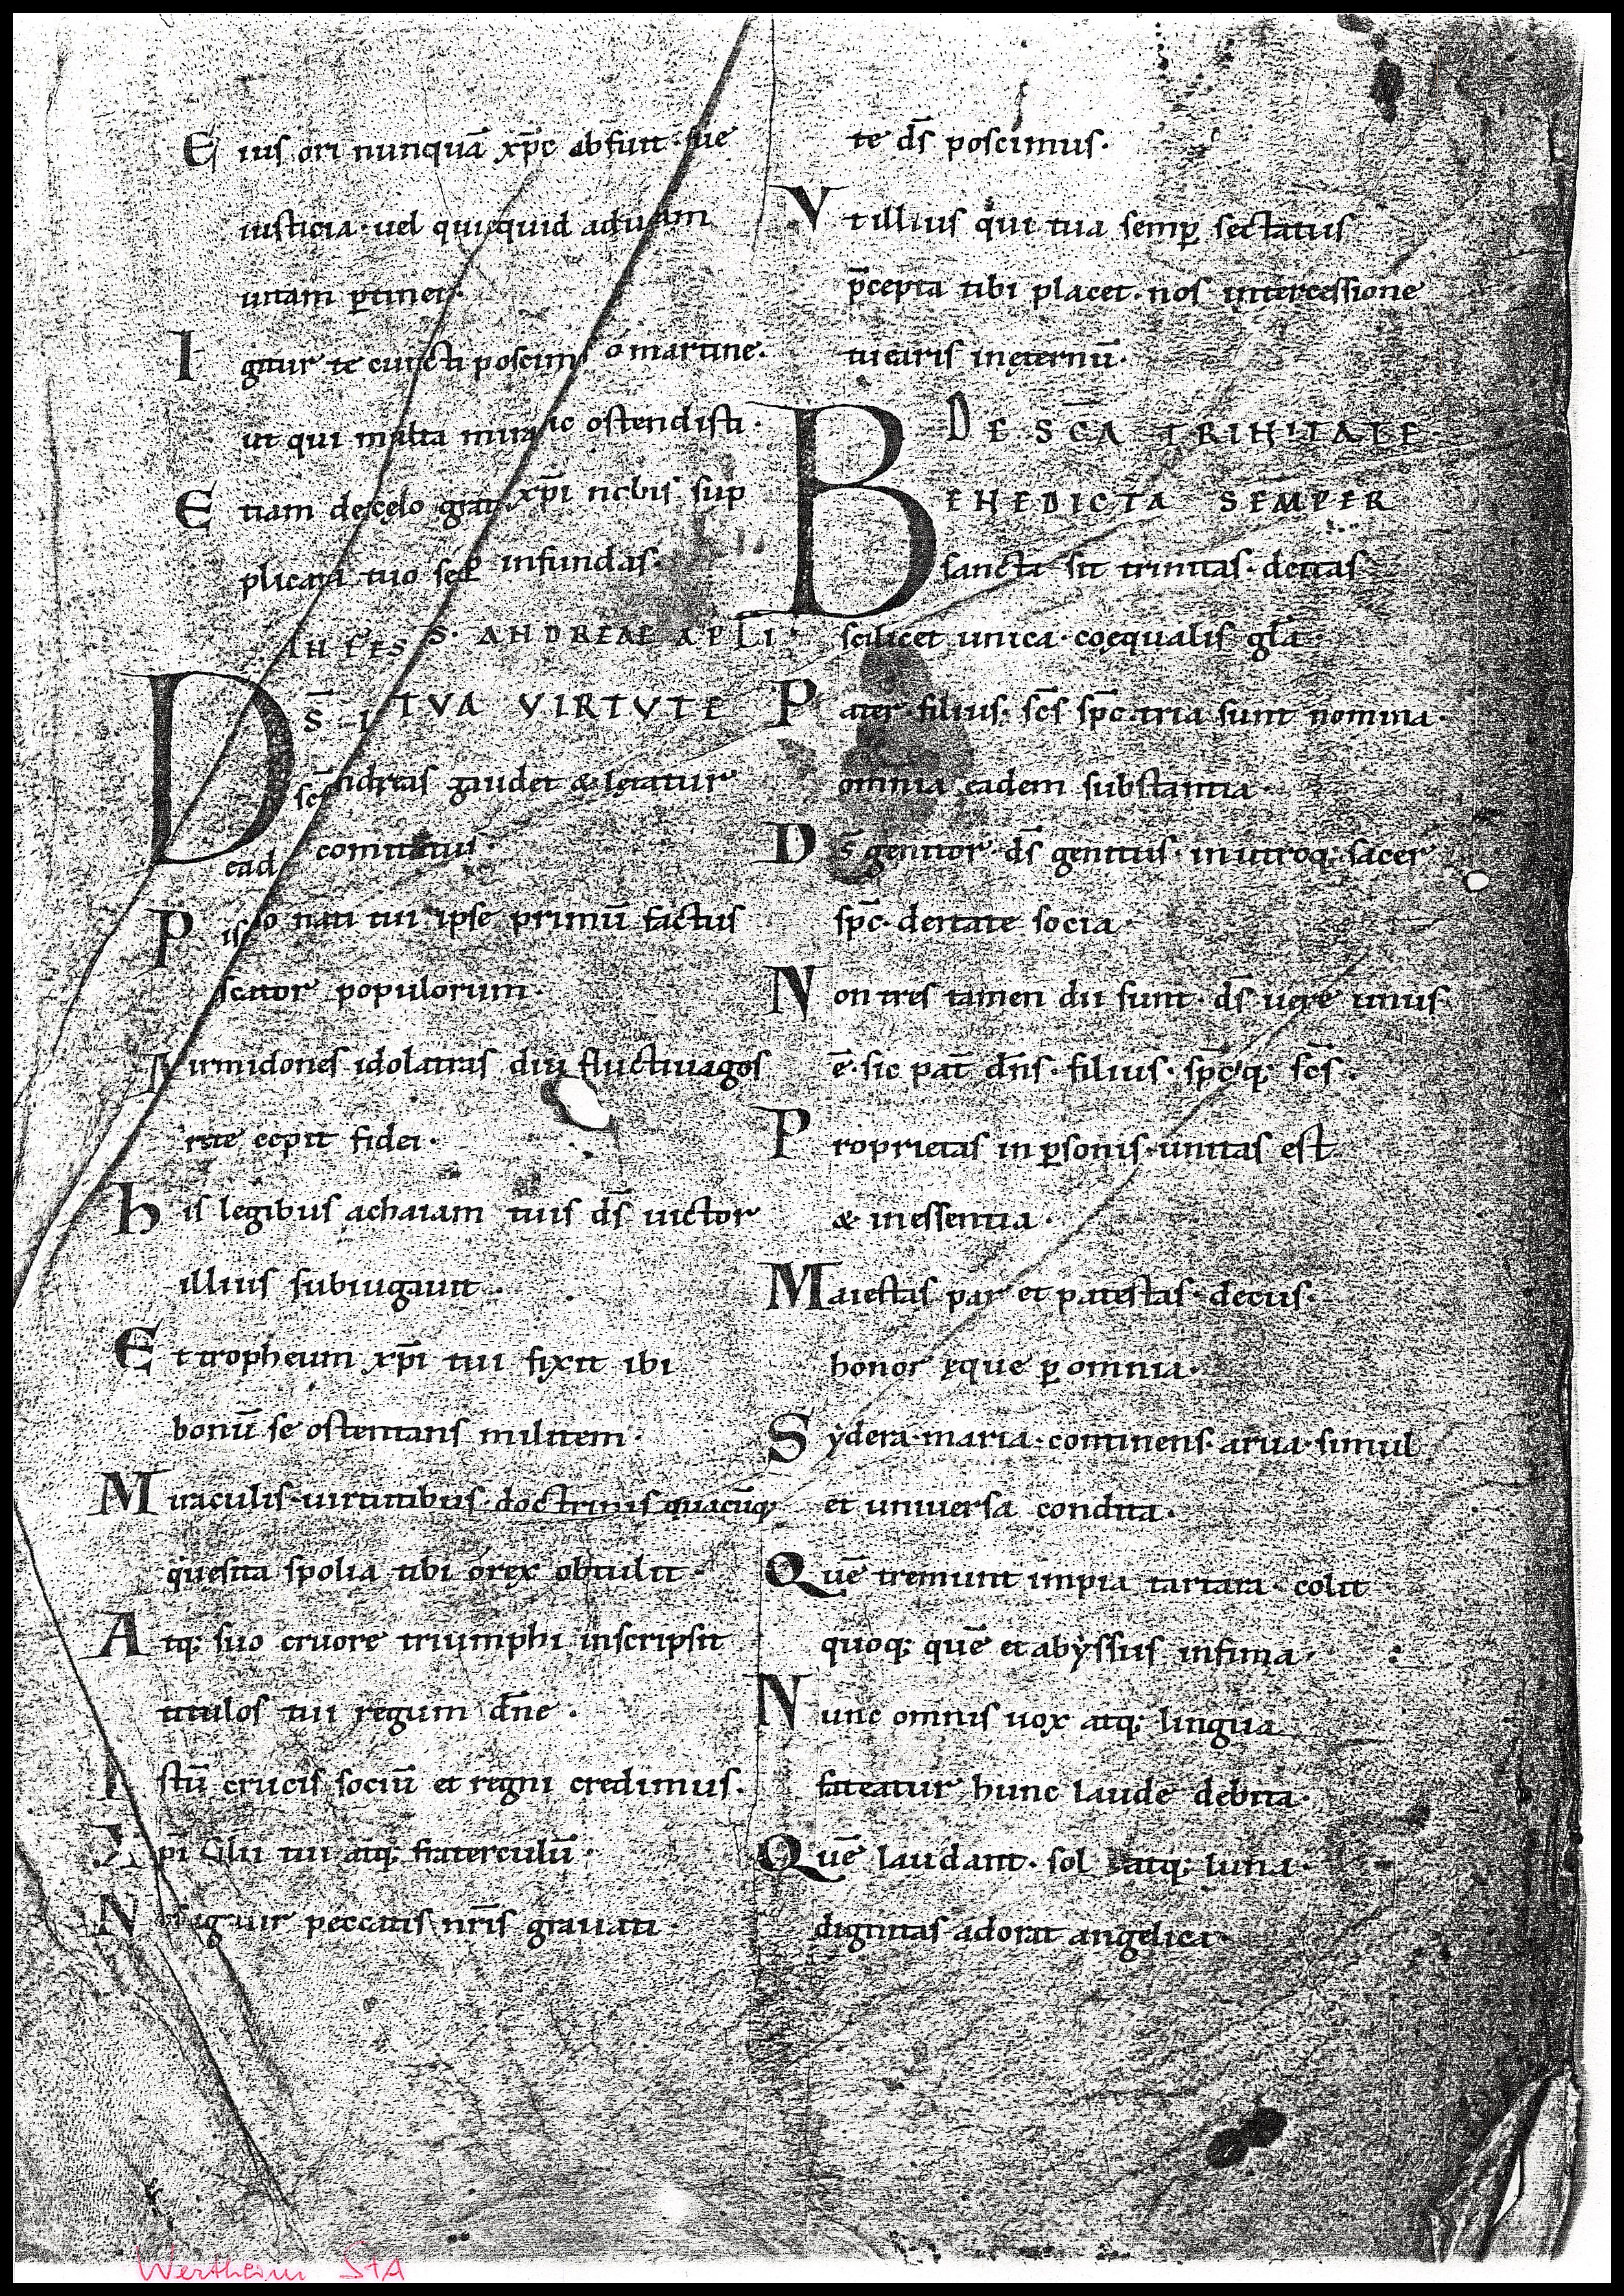 E ius ori nunquā xp̄c abfuit siue
iusticia · uel quicquid ad uitam
uitam ꝑtinet ·
I gitur te cuncti poscim' o martine ·
ut qui multa mira hic ostendisti ·
E tiam de cęlo gratiā xp̄i nobis sup
plicatu tuo semꝑ infundas ·
IN FES S · ANDREAE APLI ·
D S̄ IN TVA VIRTVTE
sc̄s andreas gaudet & letatur
ead comitatui ·
P iscator nati tui ipse primū factus
scator populorum ·
M irmidones idolatras diu fluctiuagos
rete cepit fidei ·
h is legibus achaiam tuis ds̄ uictor
illius subiugauit ·
E t tropheum xp̄i tui fixit ibi
bonū se ostentans militem ·
M iraculis · uirtutibus · doctrinis quacūq;
quesita spolia tibi o rex obtulit ·
A tq; suo cruore triumphi inscripsit
titulos tui regum dn̄e ·
I stū crucis sociū et regni credimus ·
X pi filii tui atq; fraterculū ·
N os igitur peccatis nr̄is grauati ·
te ds̄ poscimus ·
V t illius qui tua semꝑ sectatus
p̄cepta tibi placet · nos intercessione
tuearis in ęternū ·
DE SC̄A TRINITATE ·
B ENEDICTA SEMPER
sancta sit trinitas · deitas
scilicet unica · coequalis gl̄a ·
P ater · filius · sc̄s sp̄c · tria sunt nomina ·
omnia eadem substantia ·
D s̄ genitor · ds̄ genitus · in utroq; sacer
sp̄c · deitate socia ·
N on tres tamen dii sunt · ds̄ uere unus
ē · sic pat̄ dn̄s · filius · sp̄c q; sc̄s ·
P roprietas in ꝑsonis · unitas est
& in essentia ·
M aiestas par et potestas · decus ·
honor ęque ꝑ omnia ·
S ydera · maria · continens · arua · simul
et uniuersa condita ·
Q uē tremunt impia tartara · colit
quoq; quē et abyssus infima ·
N unc omnis uox atq; lingua
fateatur hunc laude debita ·
Q uē laudant · sol atq; luna ·
dignitas adorat angelica ·
Wertheim StA